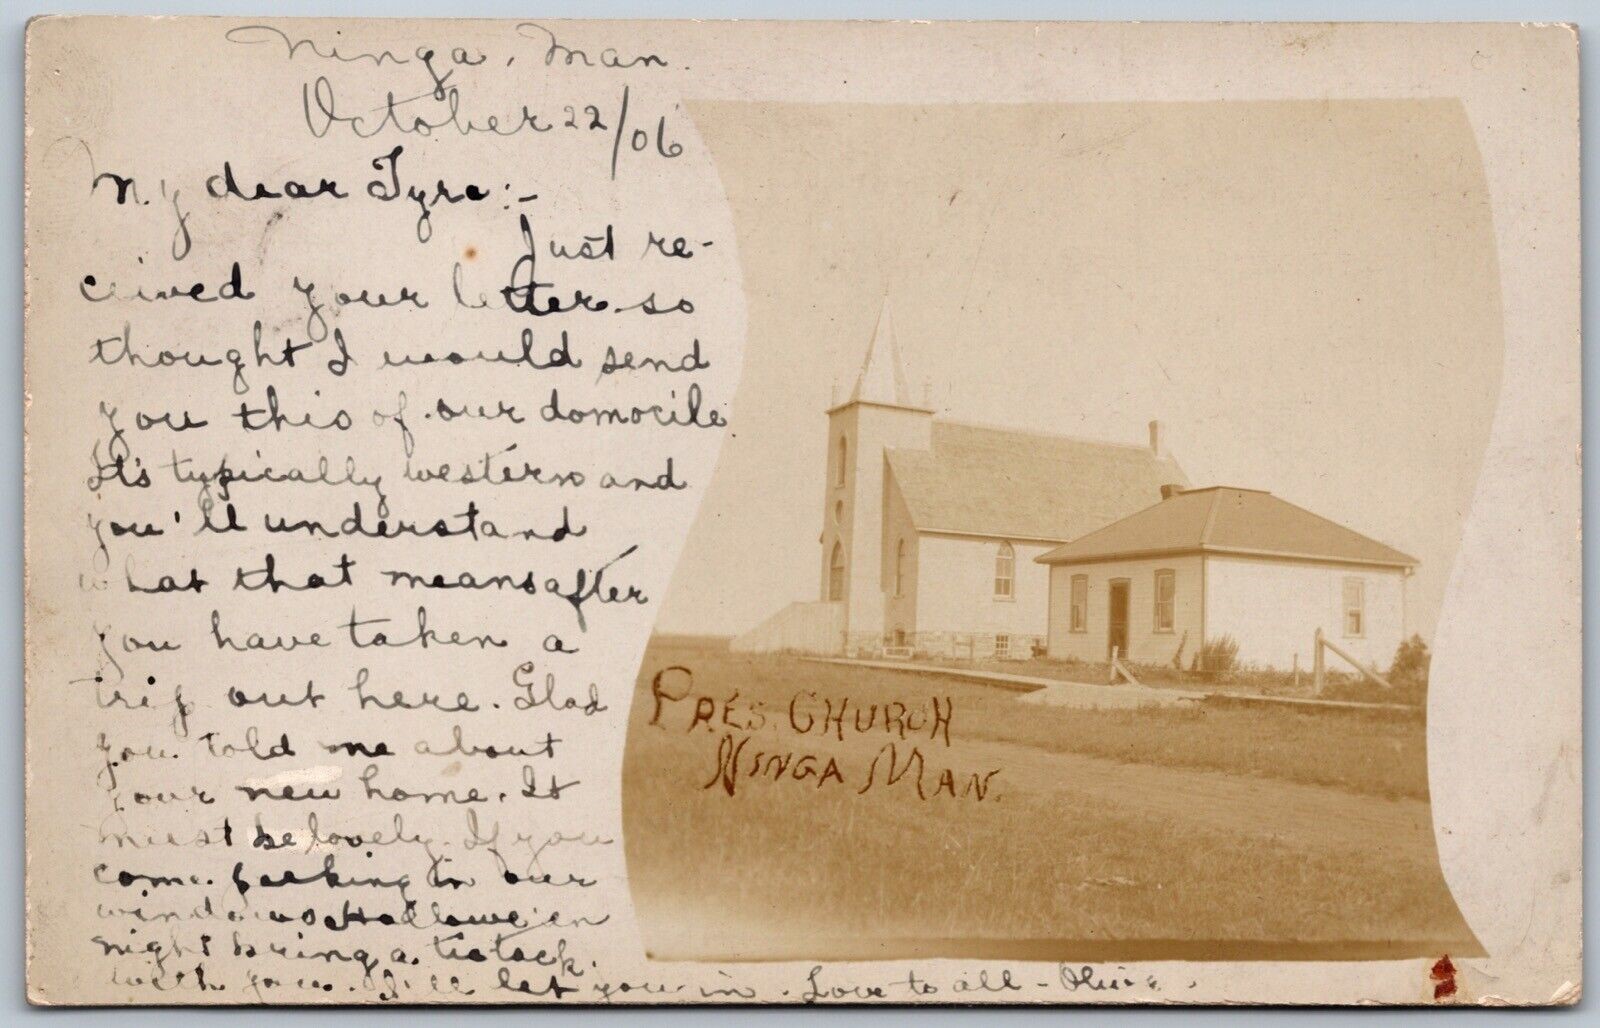 Ninga, Man.
October 22/06
My dear Tyra:-
Just re-
ceived your letter so
thought I would send
you this of our domocile
It's typically western and
you'll understand
what that means after
you have taken a
trip out here. Glad
you told me about
your new home. It
must be lovely. If you
come peeking in our
windows Hallowe'en
night bring a tictock
with you. I'll let you in. Love to all - Olive.
PRES. CHURCH
NINGA MAN.